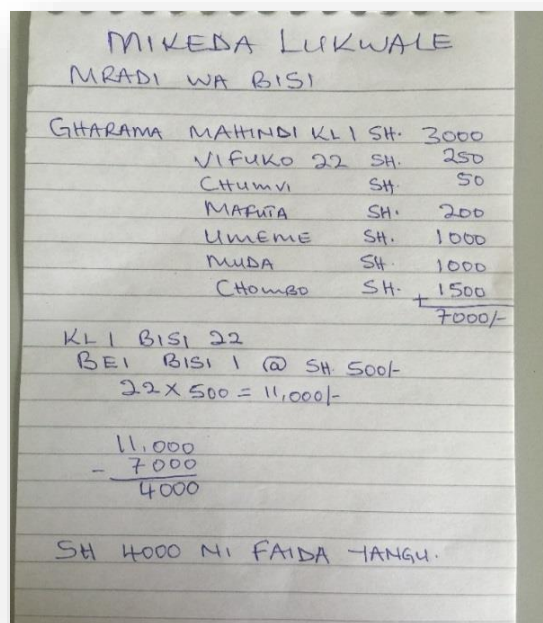 MIKEDA LUKWALE
MRADI WA BISI
GHARAMA MAHINDI KL 1 SH. 3000
VIFUKO 22 SH. 250
CHUMVI SH. 50
MAFUTA SH. 200
UMEME SH. 1000
MUDA SH. 1000
CHOMBO SH. + 1500
7000/-
KL 1 BISI 22
BEI BISI 1 @ SH. 500/-
22 X 500 = 11,000/-
11,000
- 7000
4000
SH 4000 NI FAIDA YANGU.